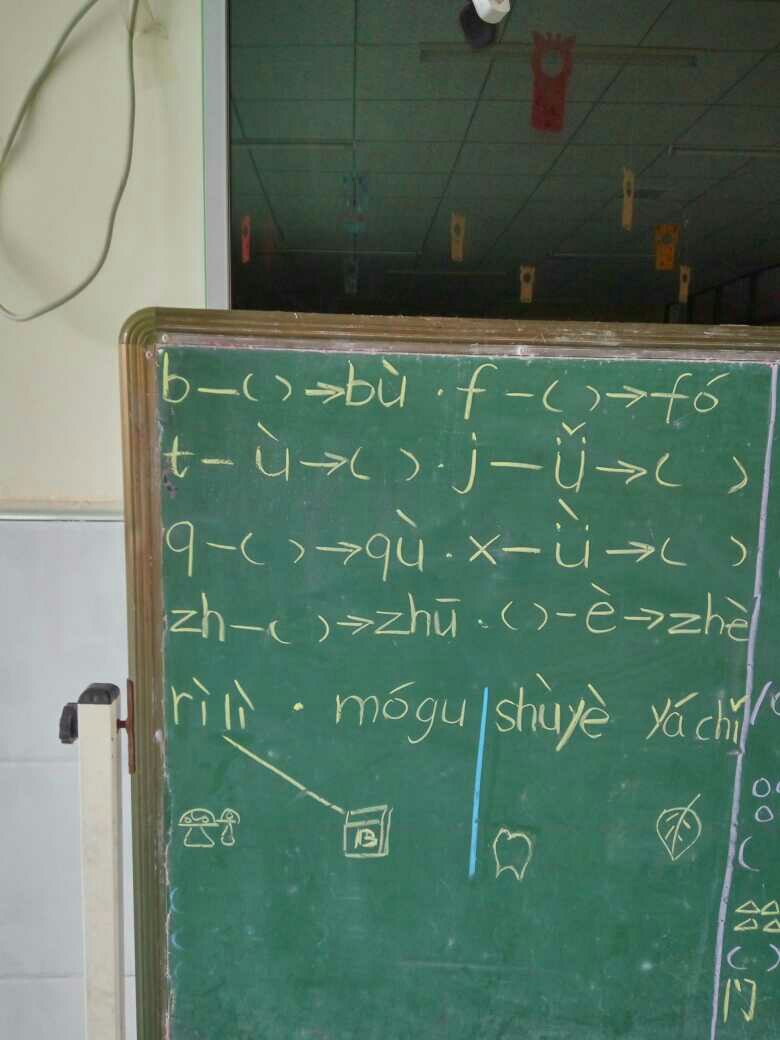 b—( )→bù · f—( )→fó
t—ù→( ) · j—ǚ→( )
q—( )→qù · x—ǜ→( )
zh—( )→zhū · ( )-è→zhè
rìlì · mógu shùyè yáchǐ
13
( )